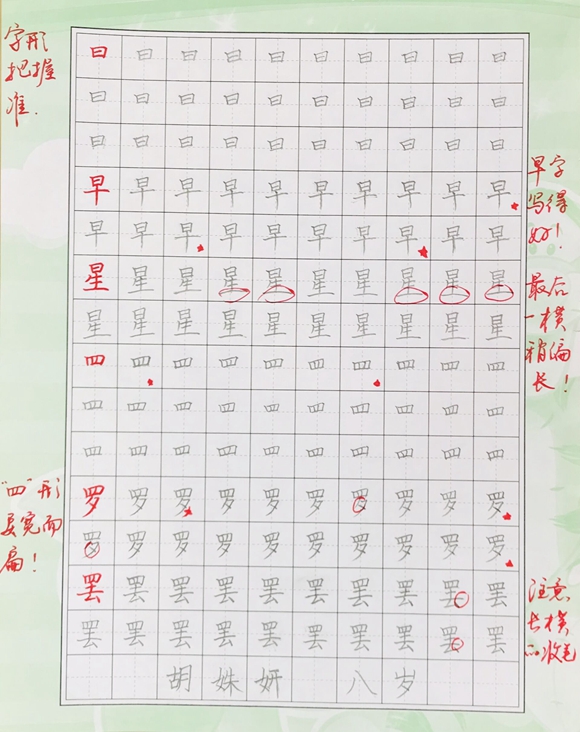 字形
把握
准.
曰曰曰曰曰曰曰曰曰曰
曰曰曰曰曰曰曰曰曰曰
曰曰曰曰曰曰曰曰曰曰
早早早早早早早早早早
早早早早早早早早早早
早字
写得
好！
星星星星星星星星星星
星星星星星星星星星星
最后
一横
稍偏
长！
四四四四四四四四四四
四四四四四四四四四四
四四四四四四四四四四
"四"形
要宽而
扁！
罗罗罗罗罗罗罗罗罗罗
罗罗罗罗罗罗罗罗罗罗
罢罢罢罢罢罢罢罢罢罢
罢罢罢罢罢罢罢罢罢罢
注意
长横
的收笔
胡姝妍 八岁